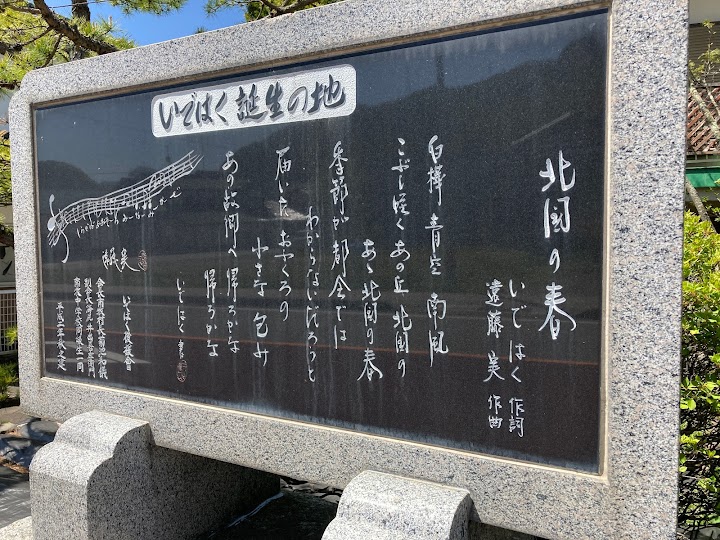 いではく誕生の地
北国の春
いではく 作詞
遠藤 実 作曲
白樺 青空 南風
こぶし咲く あの丘 北国の
あゝ北国の春
季節が都会では
わからないだろうと
届いた おふくろの
小さな包み
あの故郷へ 帰ろかな
帰ろかな
いではく 書
いではく後援會
平成二年秋之建